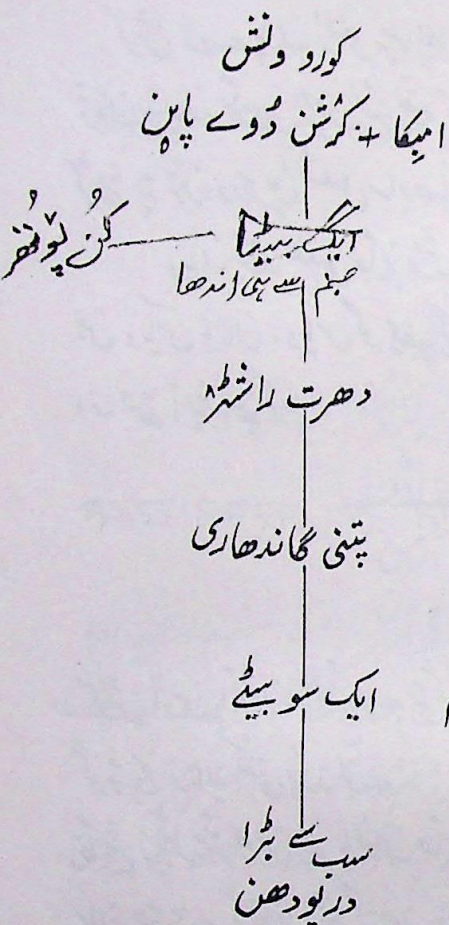 کورو ونش
امبیکا + کرشن دُوے پاین
ایک بیٹا — کُن پوتھر
جنم سے ہی اندھا
دھرت راشٹر
پتنی گاندھاری
ایک سو بیٹے
سب سے بڑا
دریودھن